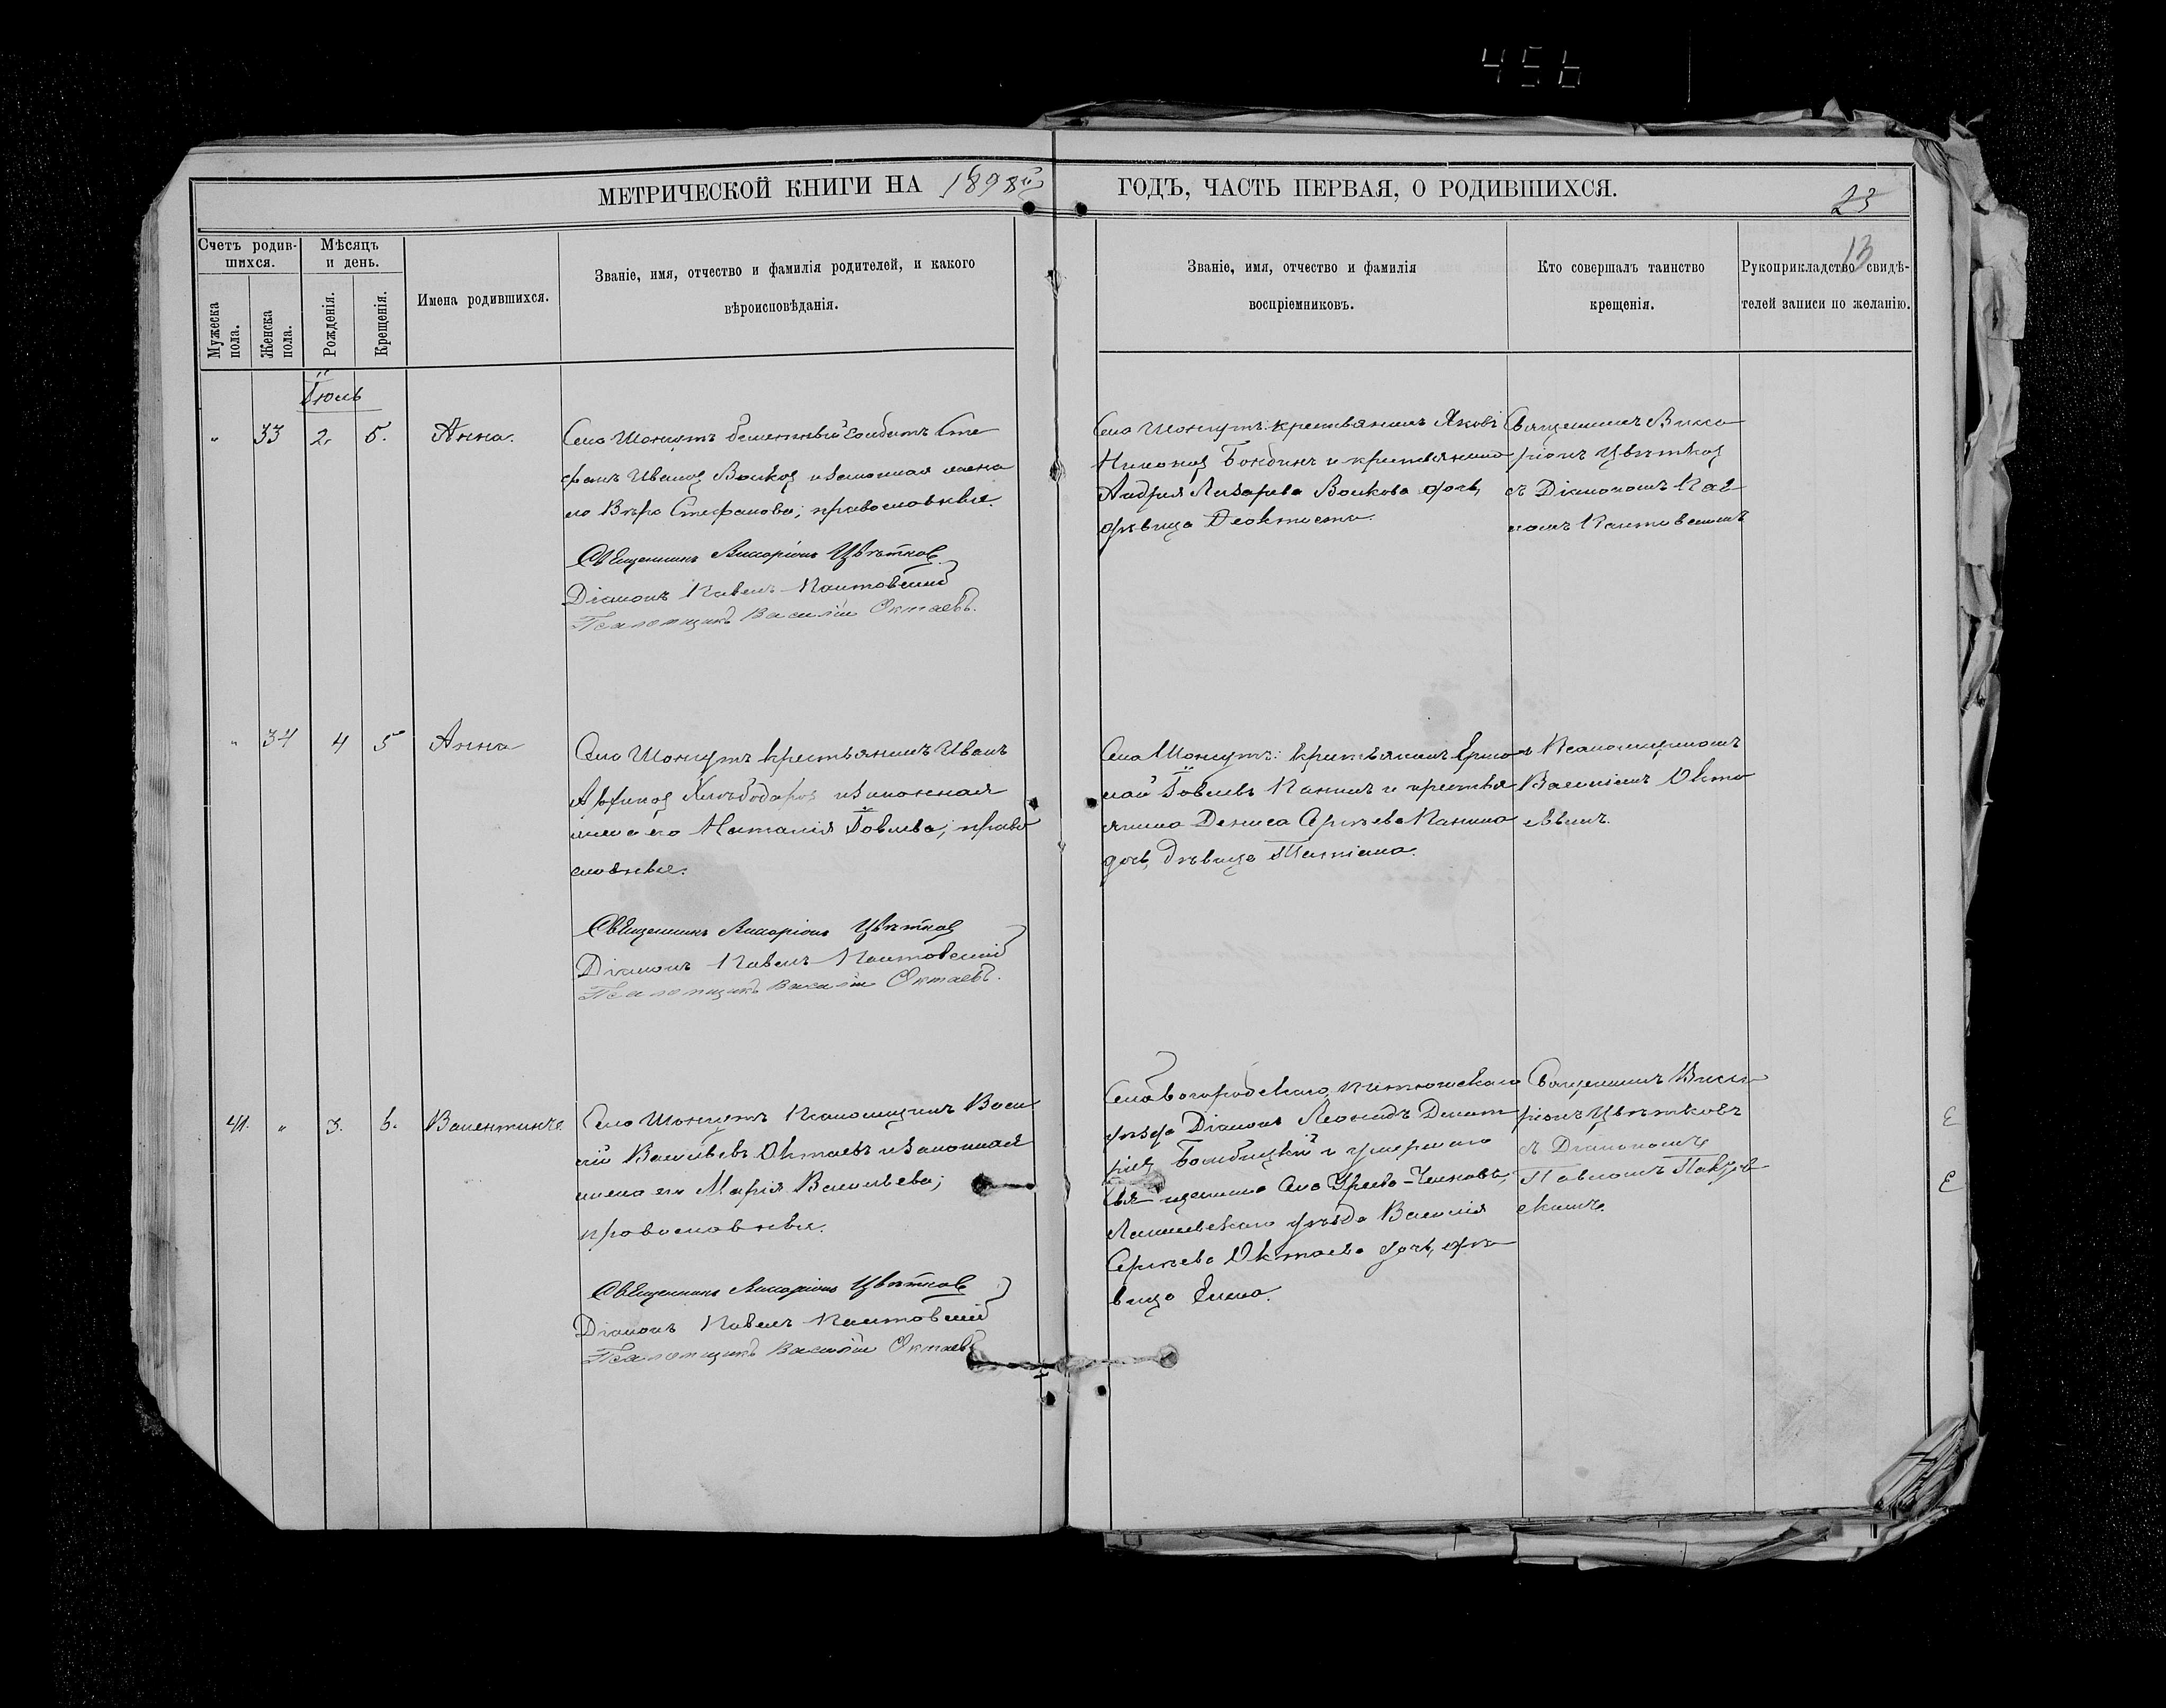 456
МЕТРИЧЕСКОЙ КНИГИ НА 1898й ГОДЪ, ЧАСТЬ ПЕРВАЯ, О РОДИВШИХСЯ.
23
13
Счетъ родив-
шихся.
Мѣсяцъ
и день.
Мужеска
пола.
Женска
пола.
Рожденія.
Крещенія.
Имена родившихся.
Званіе, имя, отчество и фамилія родителей, и какого
вѣроисповѣданія.
Званіе, имя, отчество и фамилія
воспріемниковъ.
Кто совершалъ таинство
крещенія.
Рукоприкладство свидѣ-
телей записи по желанію.
Іюль
" 33 2. 5. Анна.
Село Шонгутъ солдатъ Сте
фанъ Ивановъ Волковъ и законная жена
его Вѣра Стефанова; православные.
Священникъ Виссаріонъ Цвѣтковъ
Діаконъ Павелъ
Псаломщикъ Василій Октаевъ.
Село Шонгутъ: крестьянинъ Яковъ
и крестьянина
Андрея Лазарева Волкова дочь,
дѣвица Феоктиста.
Священникъ Висса
ріонъ Цвѣтковъ
съ Діакономъ Пав
ломъ
" 34 4 5 Анна
Село Шонгутъ крестьянинъ Иванъ
и законная
жена его Наталія Іовлева; право
славные.
Священникъ Виссаріонъ Цвѣтковъ
Діаконъ Павелъ
Псаломщикъ Василій Октаевъ.
Село Шонгутъ: крестьянинъ Ермо
лай Іовлевъ Панинъ и крестья
янина Дениса Сергѣева Панина
дочь, дѣвица Татіана.
съ Псаломщикомъ
Василіемъ Окта
евымъ.
41. " 3. 6. Валентинъ.
Село Шонгутъ Псаломщикъ Васи
лій Васильевъ Октаевъ и законная
жена его Марія Васильева;
православные.
Священникъ Виссаріонъ Цвѣтковъ
Діаконъ Павелъ
Псаломщикъ Василій Октаевъ
Села Богородскаго,
уѣзда Діаконъ Леонидъ Димит
ріевъ и умершаго
Священника села
Лаишевскаго уѣзда Василія
Сергѣева Октаева дочь, дѣ
вица Елена.
Священникъ Висса
ріонъ Цвѣтковъ
съ Діакономъ
Павломъ
скимъ.
Е
Е